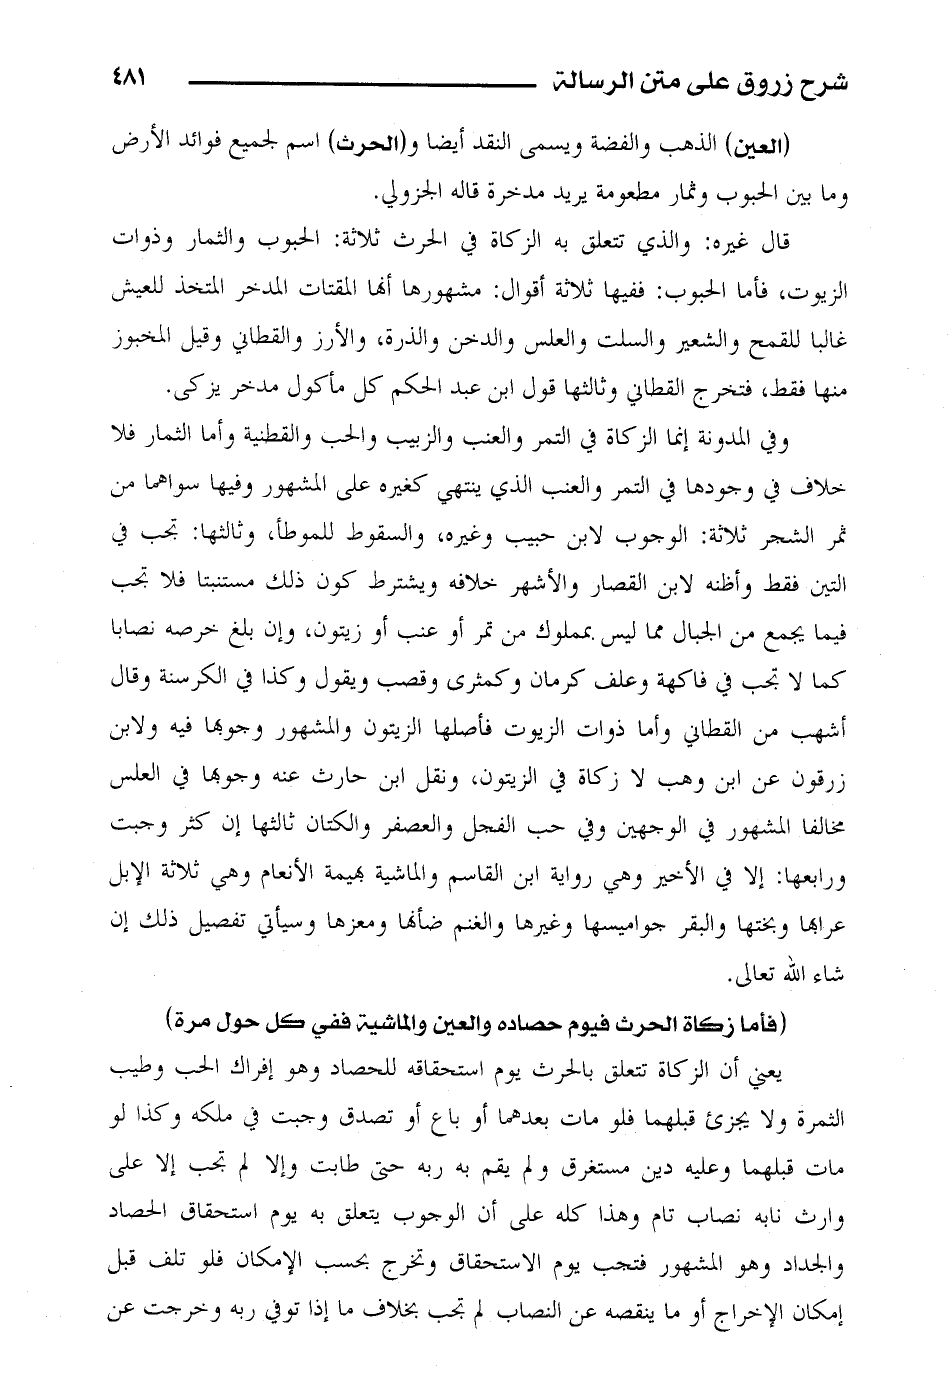 شرح زروق على متن الرسالة ٤٨١
(العين) الذهب والفضة ويسمى النقد أيضا و(الحرث) اسم لجميع فوائد الأرض
وما بين الحبوب وثمار مطعومة يريد مدخرة قاله الجزولي.
قال غيره: والذي تتعلق به الزكاة في الحرث ثلاثة: الحبوب والثمار وذوات
الزيوت، فأما الحبوب: ففيها ثلاثة أقوال: مشهورها أنها المقتات المدخر المتخذ للعيش
غالبا للقمح والشعير والسلت والعلس والدخن والذرة، والأرز والقطاني وقيل المخبوز
منها فقط، فتخرج القطاني وثالثها قول ابن عبد الحكم كل مأكول مدخر يزكى.
وفي المدونة إنما الزكاة في التمر والعنب والزبيب والحب والقطنية وأما الثمار فلا
خلاف في وجودها في التمر والعنب الذي ينتهي كغيره على المشهور وفيها سواهما من
ثمر الشجر ثلاثة: الوجوب لابن حبيب وغيره، والسقوط للموطأ، وثالثها: تجب في
التين فقط وأظنه لابن القصار والأشهر خلافه ويشترط كون ذلك مستنبتا فلا تجب
فيما يجمع من الجبال مما ليس بمملوك من تمر أو عنب أو زيتون، وإن بلغ خرصه نصابا
كما لا تجب في فاكهة وعلف كرمان وكمثرى وقصب وبقول وكذا في الكرسنة وقال
أشهب من القطاني وأما ذوات الزيوت فأصلها الزيتون والمشهور وجوبها فيه ولابن
زرقون عن ابن وهب لا زكاة في الزيتون، ونقل ابن حارث عنه وجوبها في العلس
مخالفا المشهور في الوجهين وفي حب الفجل والعصفر والكتان ثالثها إن كثر وجبت
ورابعها: إلا في الأخير وهي رواية ابن القاسم والماشية بهيمة الأنعام وهي ثلاثة الإبل
عرابها وبختها والبقر جواميسها وغيرها والغنم ضأنها ومعزها وسيأتي تفصيل ذلك إن
شاء الله تعالى.
(فأما زكاة الحرث فيوم حصاده والعين والماشية ففي كل حول مرة)
يعني أن الزكاة تتعلق بالحرث يوم استحقاقه للحصاد وهو إفراك الحب وطيب
الثمرة ولا يجزئ قبلهما فلو مات بعدهما أو باع أو تصدق وجبت في ملكه وكذا لو
مات قبلهما وعليه دين مستغرق ولم يقم به ربه حتى طابت وإلا لم تجب إلا على
وارث نابه نصاب تام وهذا كله على أن الوجوب يتعلق به يوم استحقاق الحصاد
والجداد وهو المشهور فتجب يوم الاستحقاق وتخرج بحسب الإمكان فلو تلف قبل
إمكان الإخراج أو ما ينقصه عن النصاب لم تجب بخلاف ما إذا توفي ربه وخرجت عن